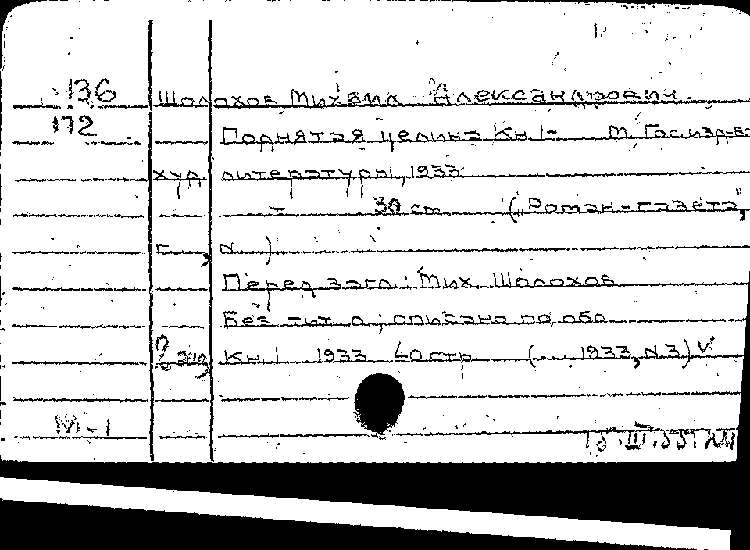 136 Шолохов, Михаил Александрович.
172 Поднятая целина Кн. 1- М. Гос. изд-во
худ. литературы, 1933
- 30 см ("Роман-газета",
г. , N )
Перед загл.: Мих. Шолохов
Без тит. л.; описано по обл.
2 экз Кн. 1 1933 60 стр (... 1933, N 3) V
М-1